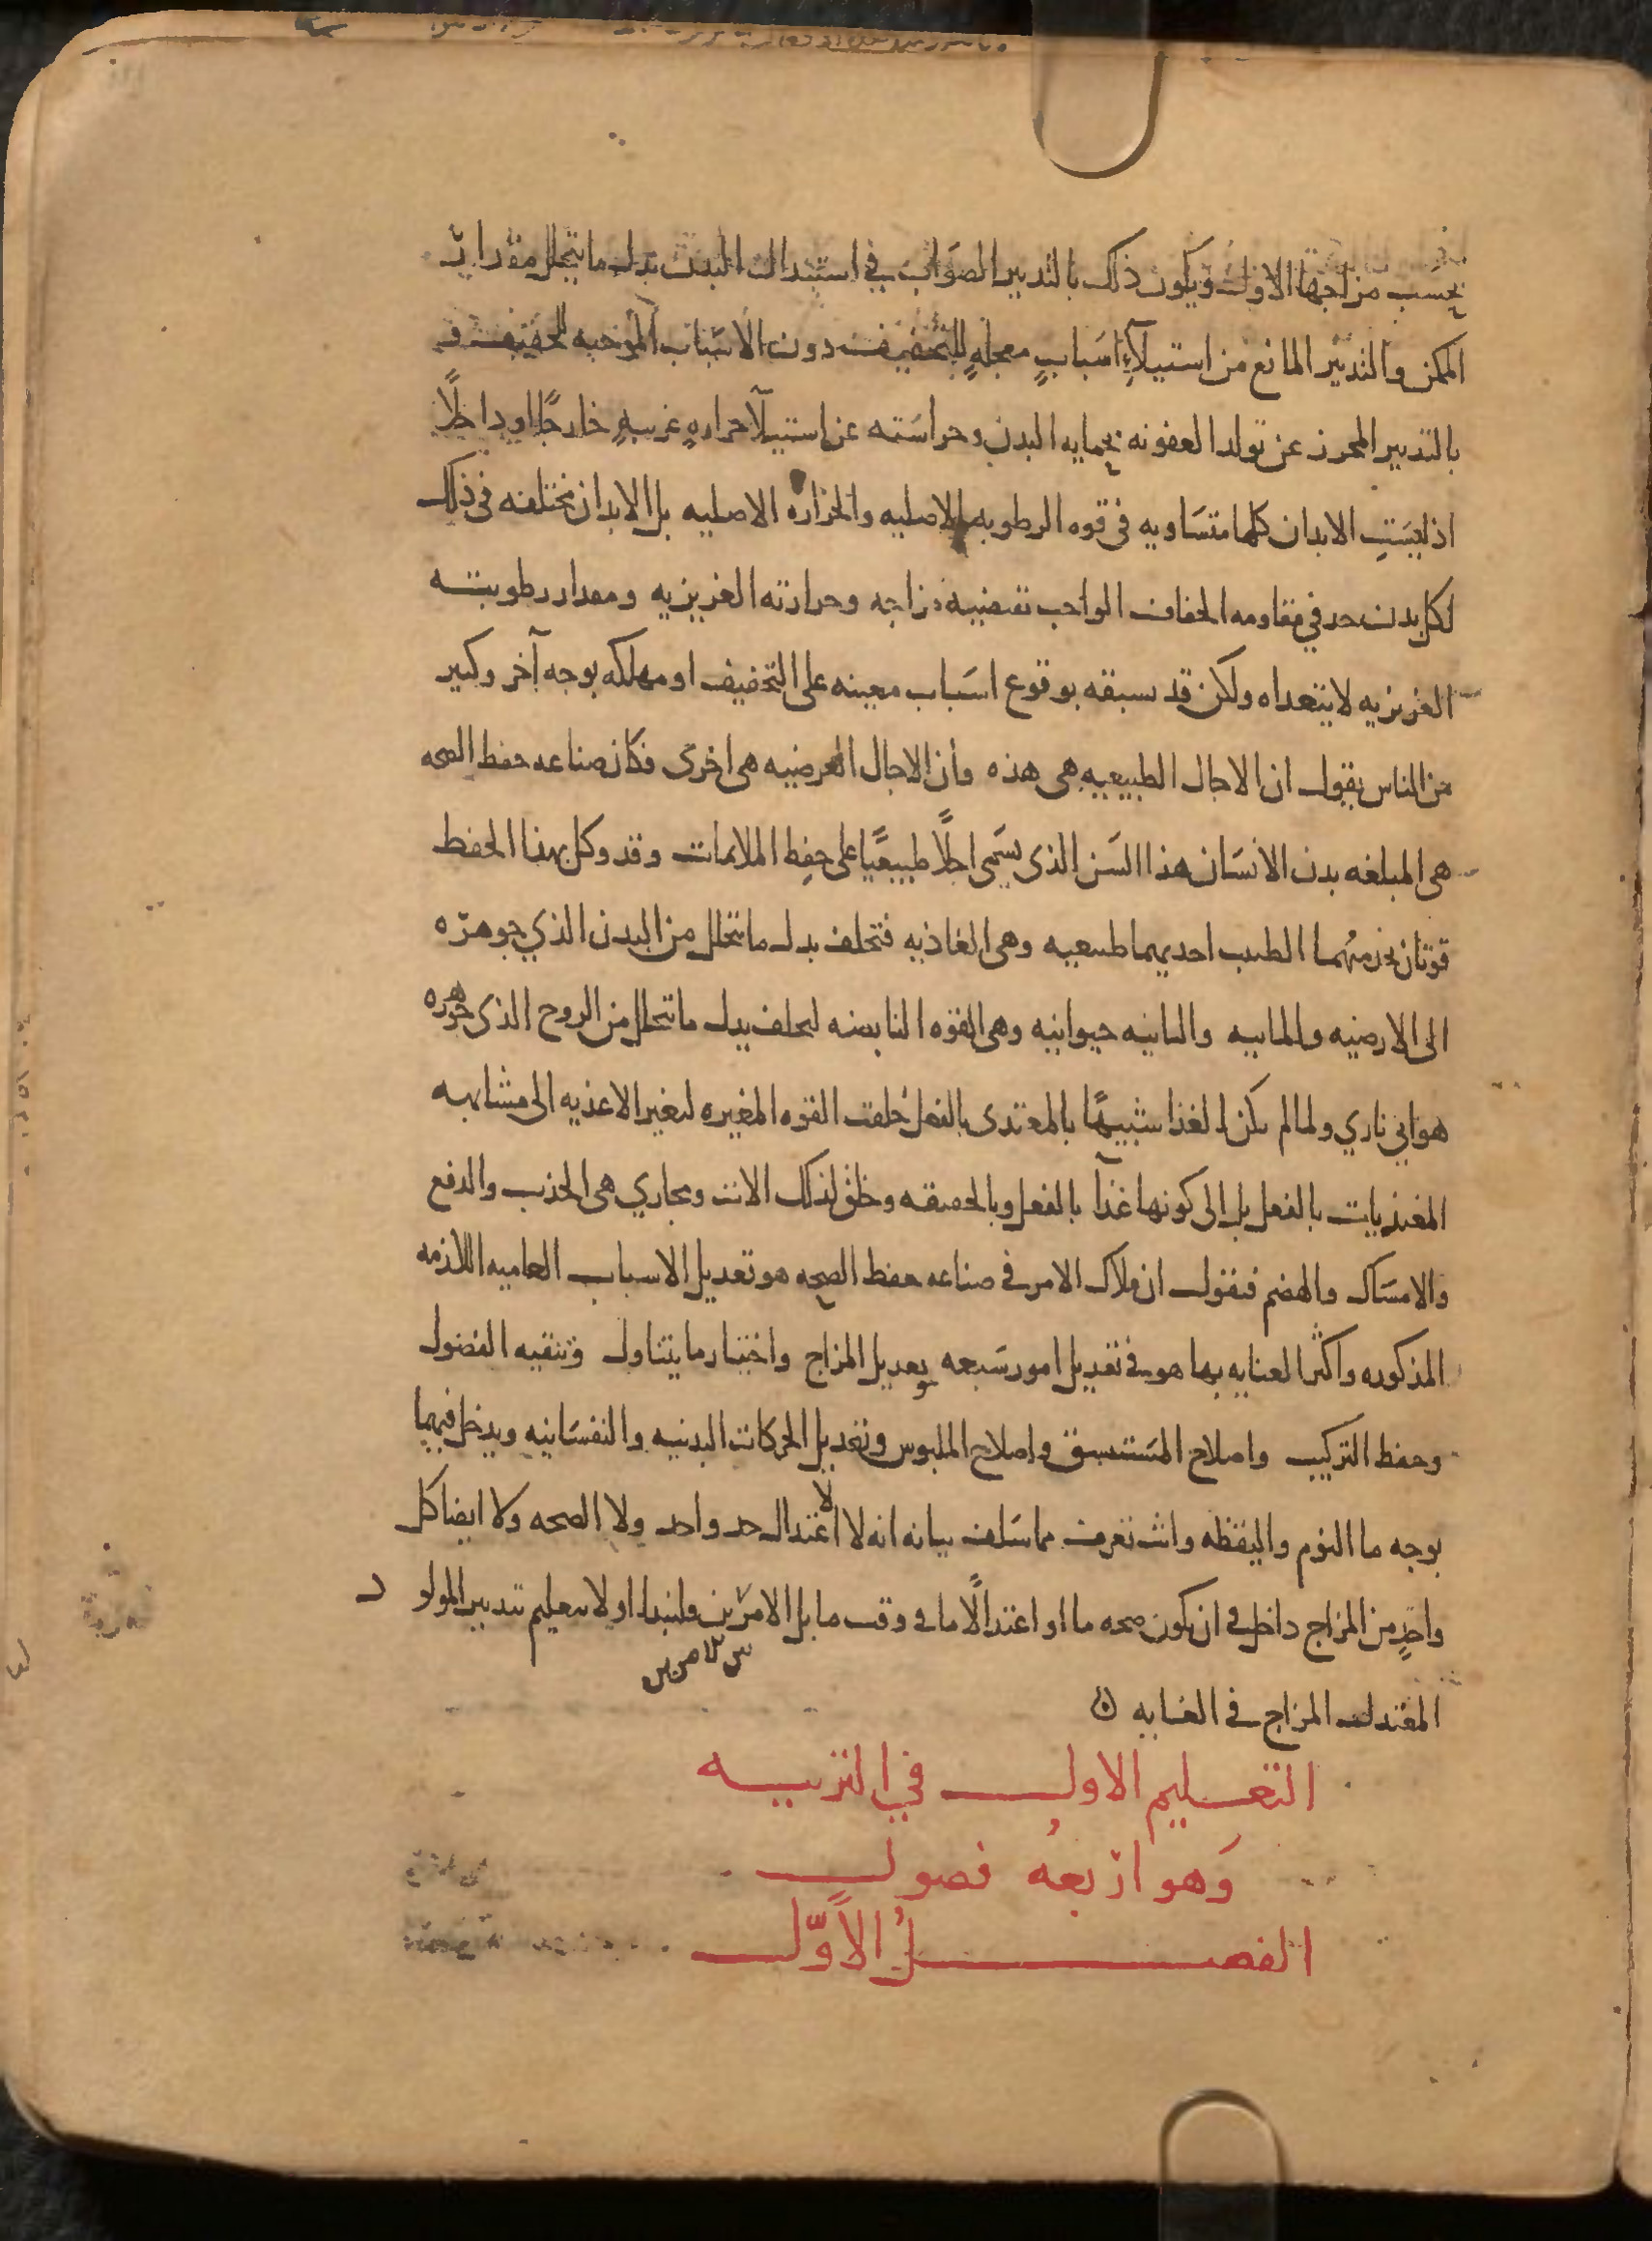 بحسب مزاجها الاول ويكون ذلك بالتدبير الصواب في استبدال البدن بدل ما يتحلل مقدار
الممكن والتدبير المانع من استيلآءِ اسبابٍ معجلهٍ للتجفيف دون الاسباب الموجبه للتجفيف و
بالتدبير المحرز عن تولد العفونه بحمايه البدن وحراسته عن استيلآ حرارهٍ غريبهٍ خارجًا او داخلًا
اذ ليستِ الابدان كلها متساويه في قوه الرطوبه الاصليه والحراره الاصليه بل الابدان مختلفه في ذلك
لكل بدن حد في مقاومه الجفاف الواجب تقتضيه مزاجه وحرارته الغريزيه ومقدار رطوبته
الغريزيه لا يتعداه ولكن قد يسبقه بوقوع اسباب معينه على التجفيف او مهلكه بوجه آخر وكثير
من الناس يقول ان الاجال الطبيعيه هى هذه وان الاجال العرضيه هى اخرى فكان صناعه حفظ الصحه
هى المبلغه بدن الانسان هذا السن الذى يسمى اجلًا طبيعيًا على حفظ الملايمات وقد وكل بهذا الحفظ
قوتان يخدمهما الطبيب احديهما طبيعيه وهى الغاذيه فتخلف بدل ما يتحلل من البدن الذي جوهره
الى الارضيه والمائيه والثانيه حيوانيه وهى القوه النابضه لتخلف بدل ما يتحلل من الروح الذى جوهره
هوايي ناري ولما لم يكن الغذا شبيهًا بالمغتذى بالفعل خلقت القوه المغيره لتغير الاغذيه الى مشابهه
المغتذيات بالفعل بل الى كونها غذآ بالفعل وبالحقيقه وخلق لذلك الات ومجاري هى الجذب والدفع
والامساك والهضم فنقول ان ملاك الامر في صناعه حفظ الصحه هو تعديل الاسباب العاميه اللازمه
المذكوره واكثر العنايه بها هو في تعديل امور سبعه تعديل المزاج واختيار ما يتناول وتنقيه الفضول
وحفظ التركيب واصلاح المستنشق واصلاح الملبوس وتعديل الحركات البدنيه والنفسانيه ويدخل فيهما
بوجه ما النوم واليقظه وانت تعرف مما سلف بيانه انه لا لا اعتدال حد واحد ولا الصحه ولا ايضا كل
واحدٍ من المزاج داخل في ان يكون صحه ما او اعتدالًا ما في وقت ما بل الامر بين فلنبدا اولا بتعليم تدبير المولود
المعتدل المزاج في الغايه
التعليم الاول في التربيه
وَهو اربعهُ فصول
الفصلُ الاَوَّل